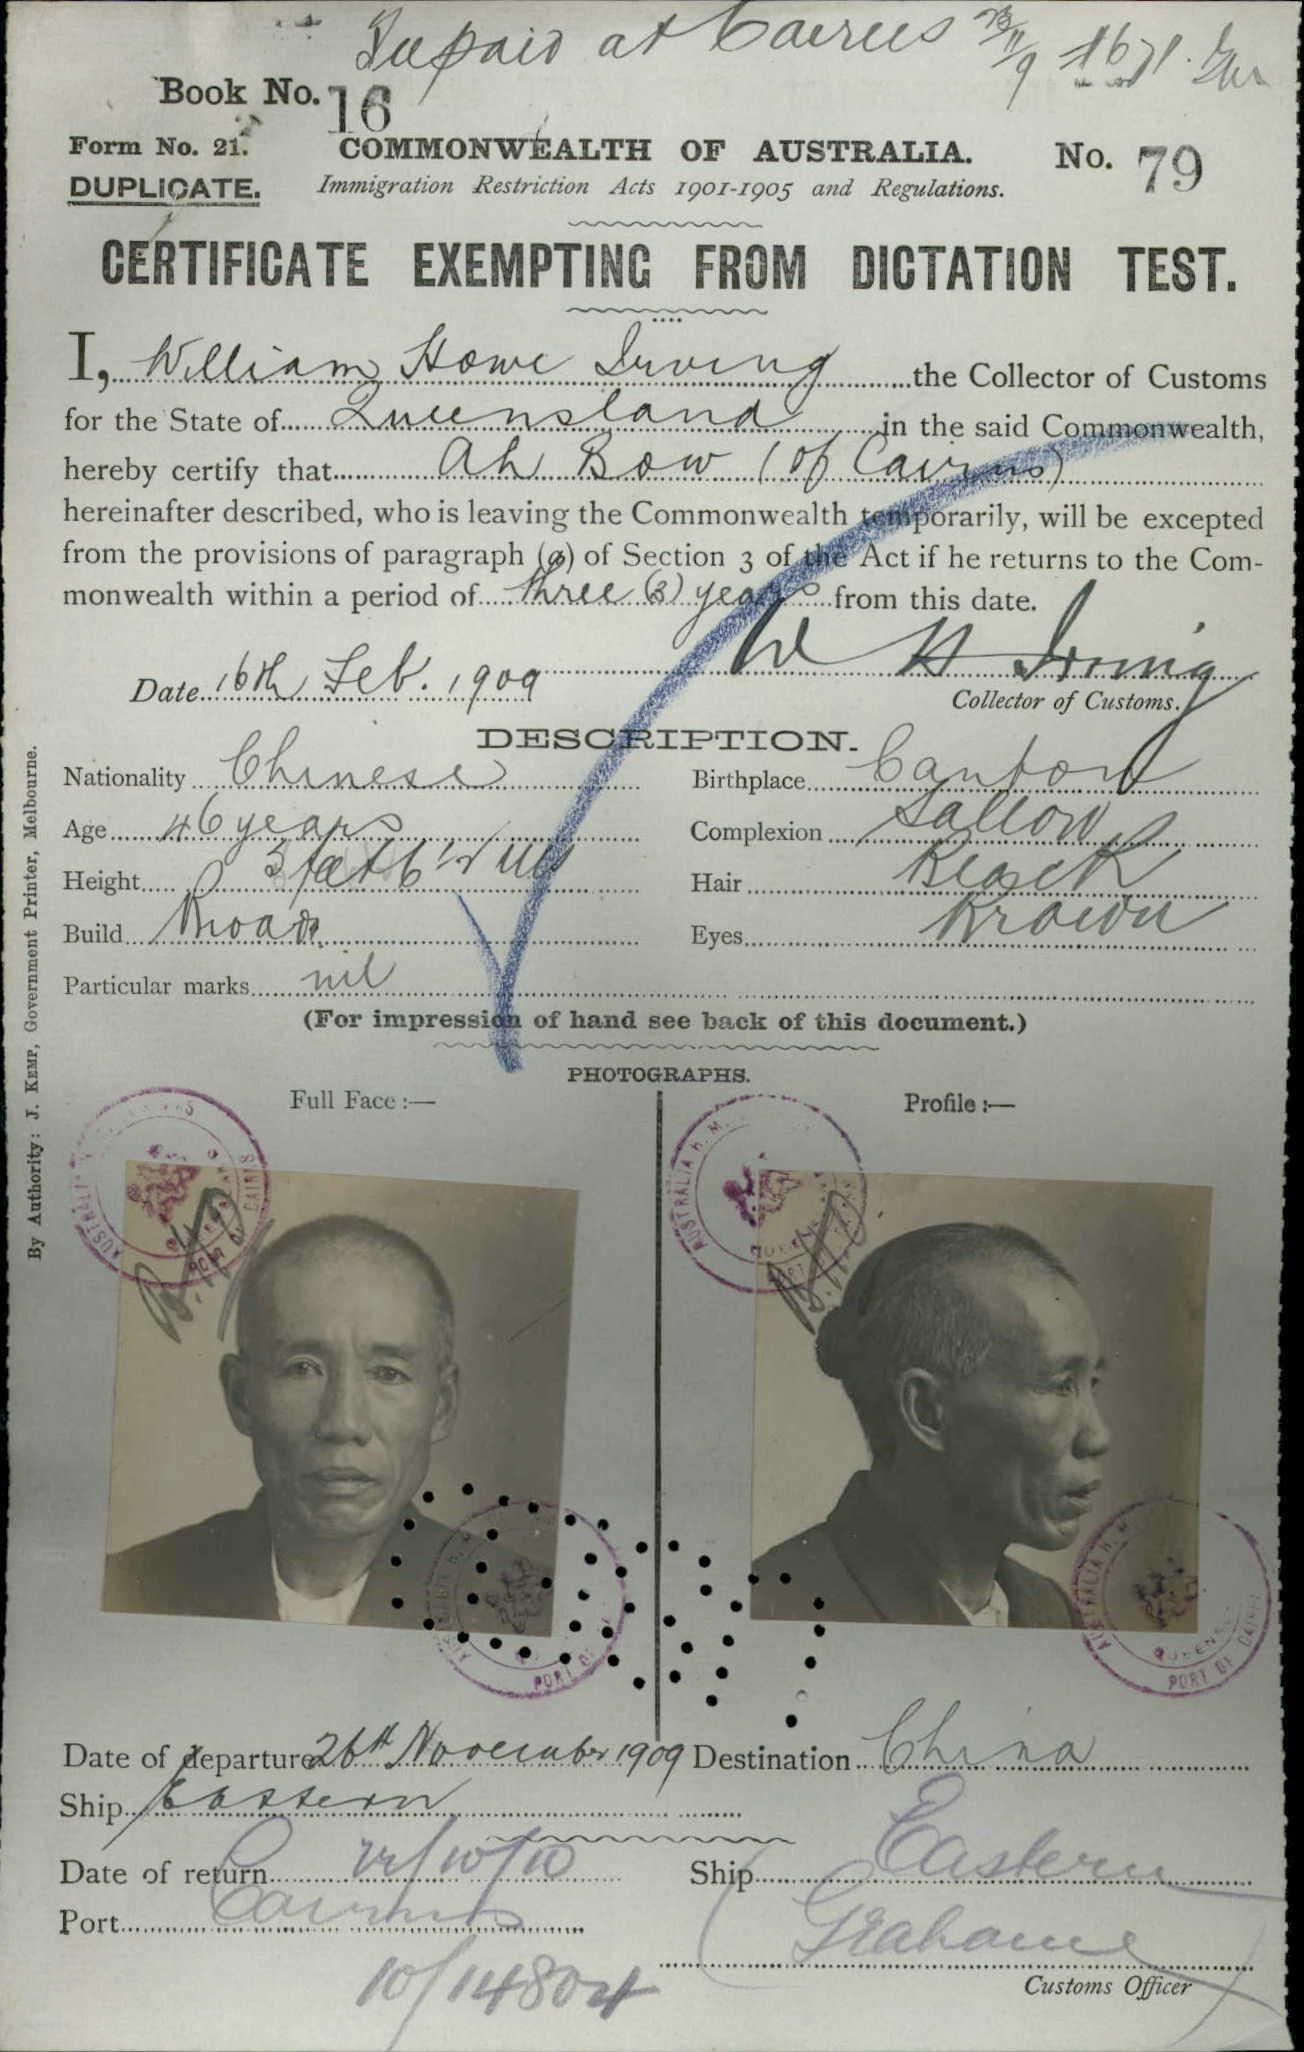 paid at Cairns
Book No. 16
Form No. 21. COMMONWEALTH OF AUSTRALIA. No. 79
DUPLICATE. Immigration Restriction Acts 1901-1905 and Regulations.
CERTIFICATE EXEMPTING FROM DICTATION TEST.
I, William Howe Irving the Collector of Customs
for the State of Queensland in the said Commonwealth,
hereby certify that Ah Bow (of Cairns)
hereinafter described, who is leaving the Commonwealth temporarily, will be excepted
from the provisions of paragraph (a) of Section 3 of the Act if he returns to the Com-
monwealth within a period of three (3) years from this date.
W H Irving
Date 16th Feb. 1909
Collector of Customs.
DESCRIPTION.
Nationality Chinese Birthplace Canton
Age 46 years Complexion Sallow
Height 5 feet 6 Hair Black
Build Broad Eyes Brown
Particular marks nil
(For impression of hand see back of this document.)
PHOTOGRAPHS.
Full Face :— Profile :—
AUSTRALIA PORT OF CAIRNS
AUSTRALIA H. M.
AUSTRALIA H. PORT OF
AUSTRALIA H. QUEENS PORT OF CAIRNS
Date of departure 26th November 1909 Destination China
Ship Eastern
Date of return 22/10/10 Ship Eastern
Port Cairns
Grahame
Customs Officer
10/14804
By Authority: J. KEMP, Government Printer, Melbourne.